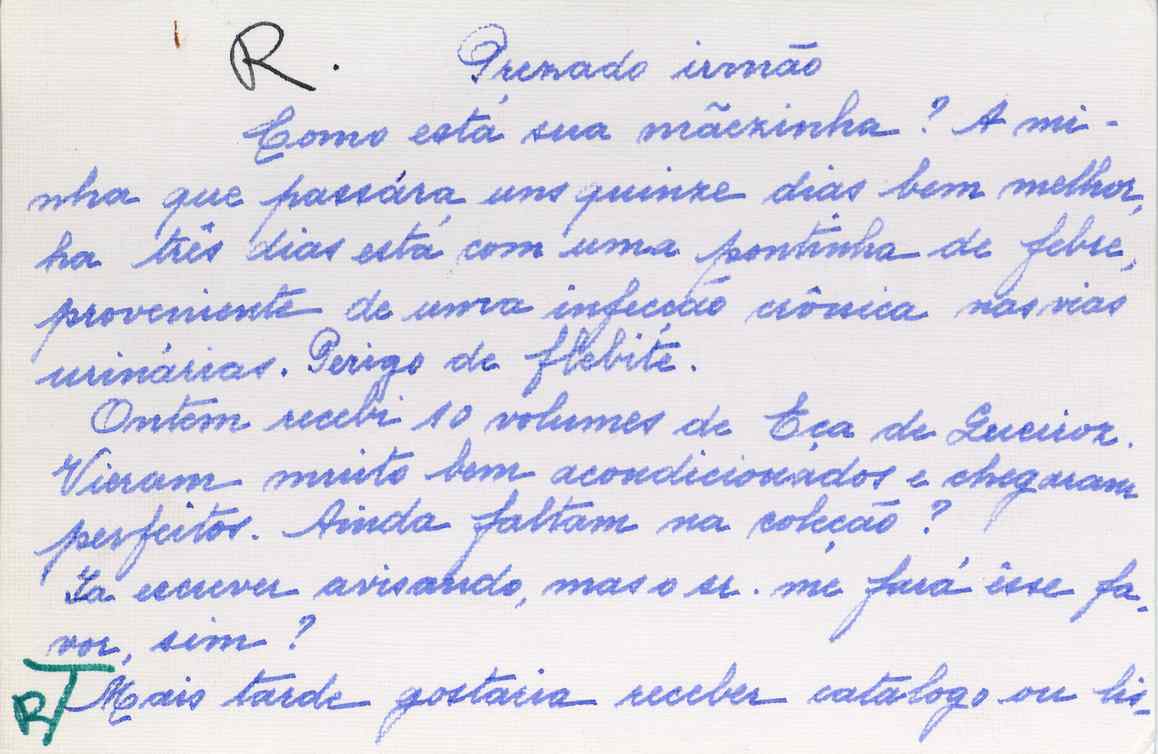 R. Prezado irmão
Como está sua mãezinha? A mi-
nha que passára uns quinze dias bem melhor,
ha três dias está com uma pontinha de febre,
proveniente de uma infecção crônica nas vias
urinárias. Perigo de flebite.
Ontem recebi 10 volumes de Eça de Queiroz.
Vieram muito bem acondicionados e chegaram
perfeitos. Ainda faltam na coleção?
Ia escrever avisando, mas o sr. me fará êsse fa-
vor, sim?
RT Mais tarde gostaria receber catalogo ou lis-